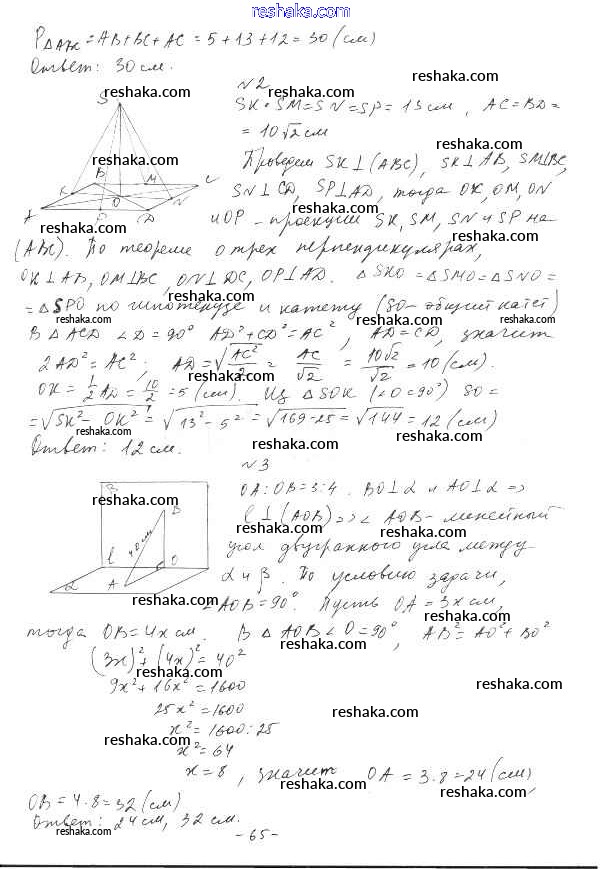 reshaka.com
P△ABC = AB + BC + AC = 5 + 13 + 12 = 30 (см)
Ответ: 30 см.
N2
SK = SM = SN = SP = 13 см, AC = BD =
= 10√2 см
Проведем SK⊥(ABC), SK⊥AB, SM⊥BC,
SN⊥CD, SP⊥AD, тогда OK, OM, ON
и OP – проекции SK, SM, SN и SP на
(ABC). По теореме о трех перпендикулярах,
OK⊥AB, OM⊥BC, ON⊥DC, OP⊥AD. △SKO = △SMO = △SNO =
= △SPO по гипотенузе и катету (SO – общий катет)
В △ACD ∠D = 90° AD² + CD² = AC², AD = CD, значит
2AD² = AC²; AD = √(AC²/2) = AC/√2 = 10√2/√2 = 10 (см).
OK = 1/2 AD = 10/2 = 5 (см). Из △SOK (∠O = 90°) SO =
= √(SK² – OK²) = √(13² – 5²) = √(169 – 25) = √144 = 12 (см)
Ответ: 12 см.
N3
OA : OB = 3 : 4. BO⊥α и AO⊥α =>
l⊥(AOB) => ∠AOB – линейный
угол двугранного угла между
α и β. По условию задачи,
∠AOB = 90°. Пусть OA = 3x см,
тогда OB = 4x см. В △AOB ∠O = 90°, AB² = AO² + BO²
(3x)² + (4x)² = 40²
9x² + 16x² = 1600
25x² = 1600
x² = 1600 : 25
x² = 64
x = 8, значит OA = 3·8 = 24 (см)
OB = 4·8 = 32 (см)
Ответ: 24 см, 32 см.
- 65 -